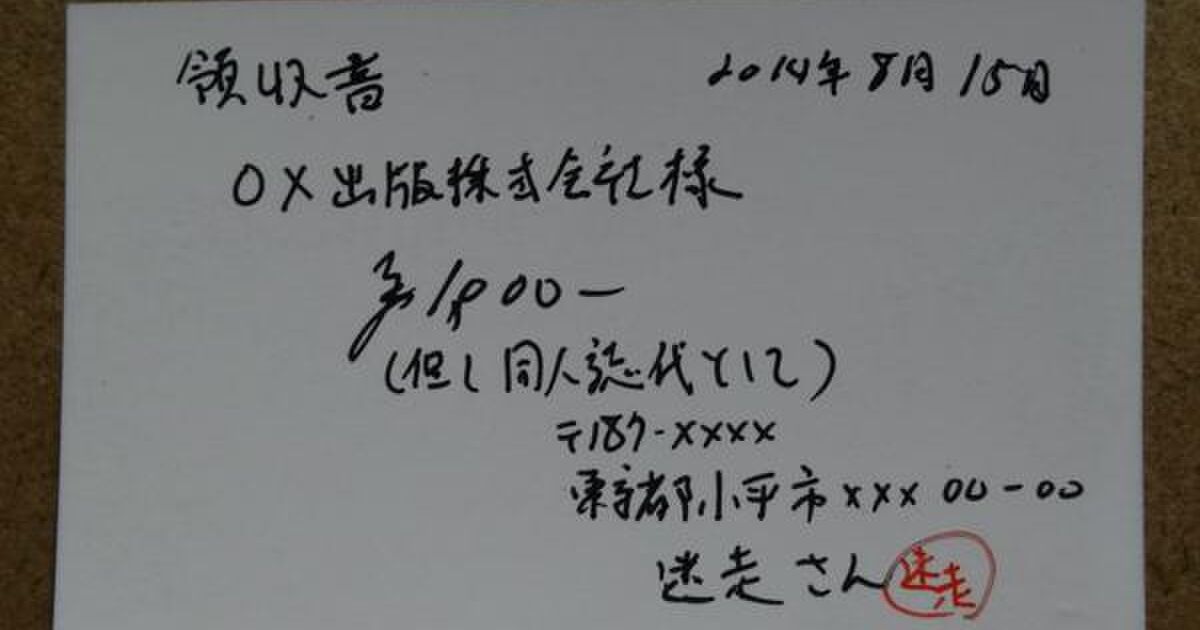 領収書 2014年8月15日
OX出版株式会社様
1900-
(但し同人誌代として)
〒187-XXXX
東京都小平市XXX 00-00
迷走さん 迷走